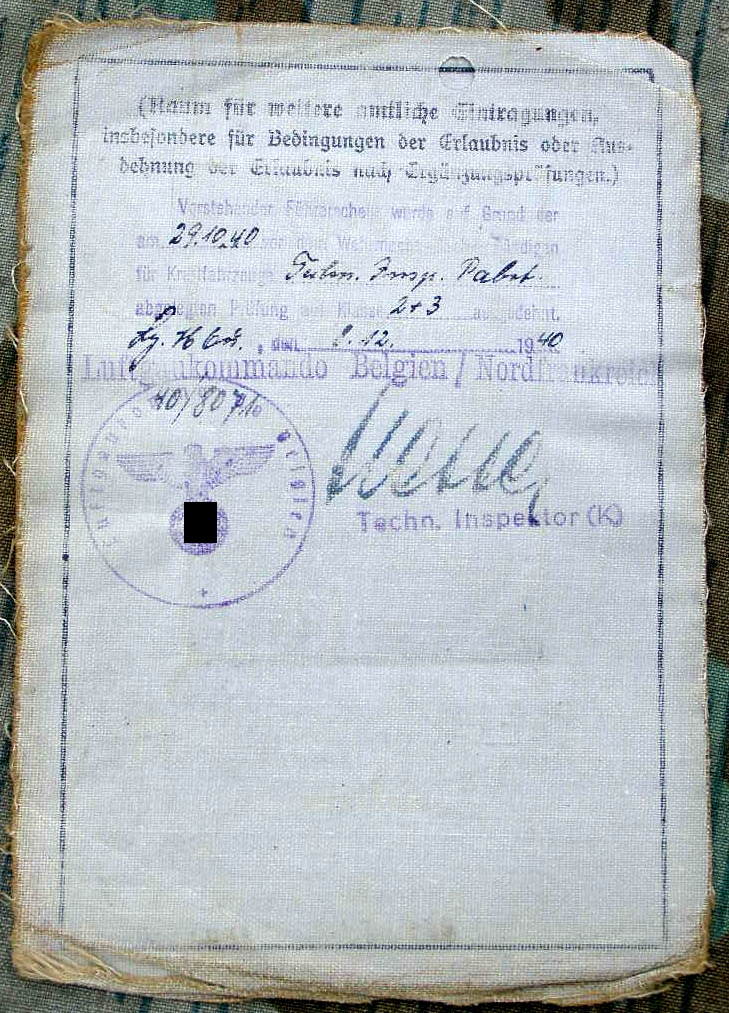 (Raum für weitere amtliche Eintragungen,
insbesondere für Bedingungen der Erlaubnis oder Aus-
dehnung der Erlaubnis nach Ergänzungsprüfungen.)
Vorstehender Führerschein wurde auf Grund der
am 29.10.40 vor dem
für Kraftfahrzeuge Insp. Pabst.
abgelegten Prüfung auf Klasse 2+3 ausgedehnt.
, den 12. 1940
Luftgaukommando Belgien / Nordfrankreich
Luftgaukommando Belgien
Techn. Inspektor (K)